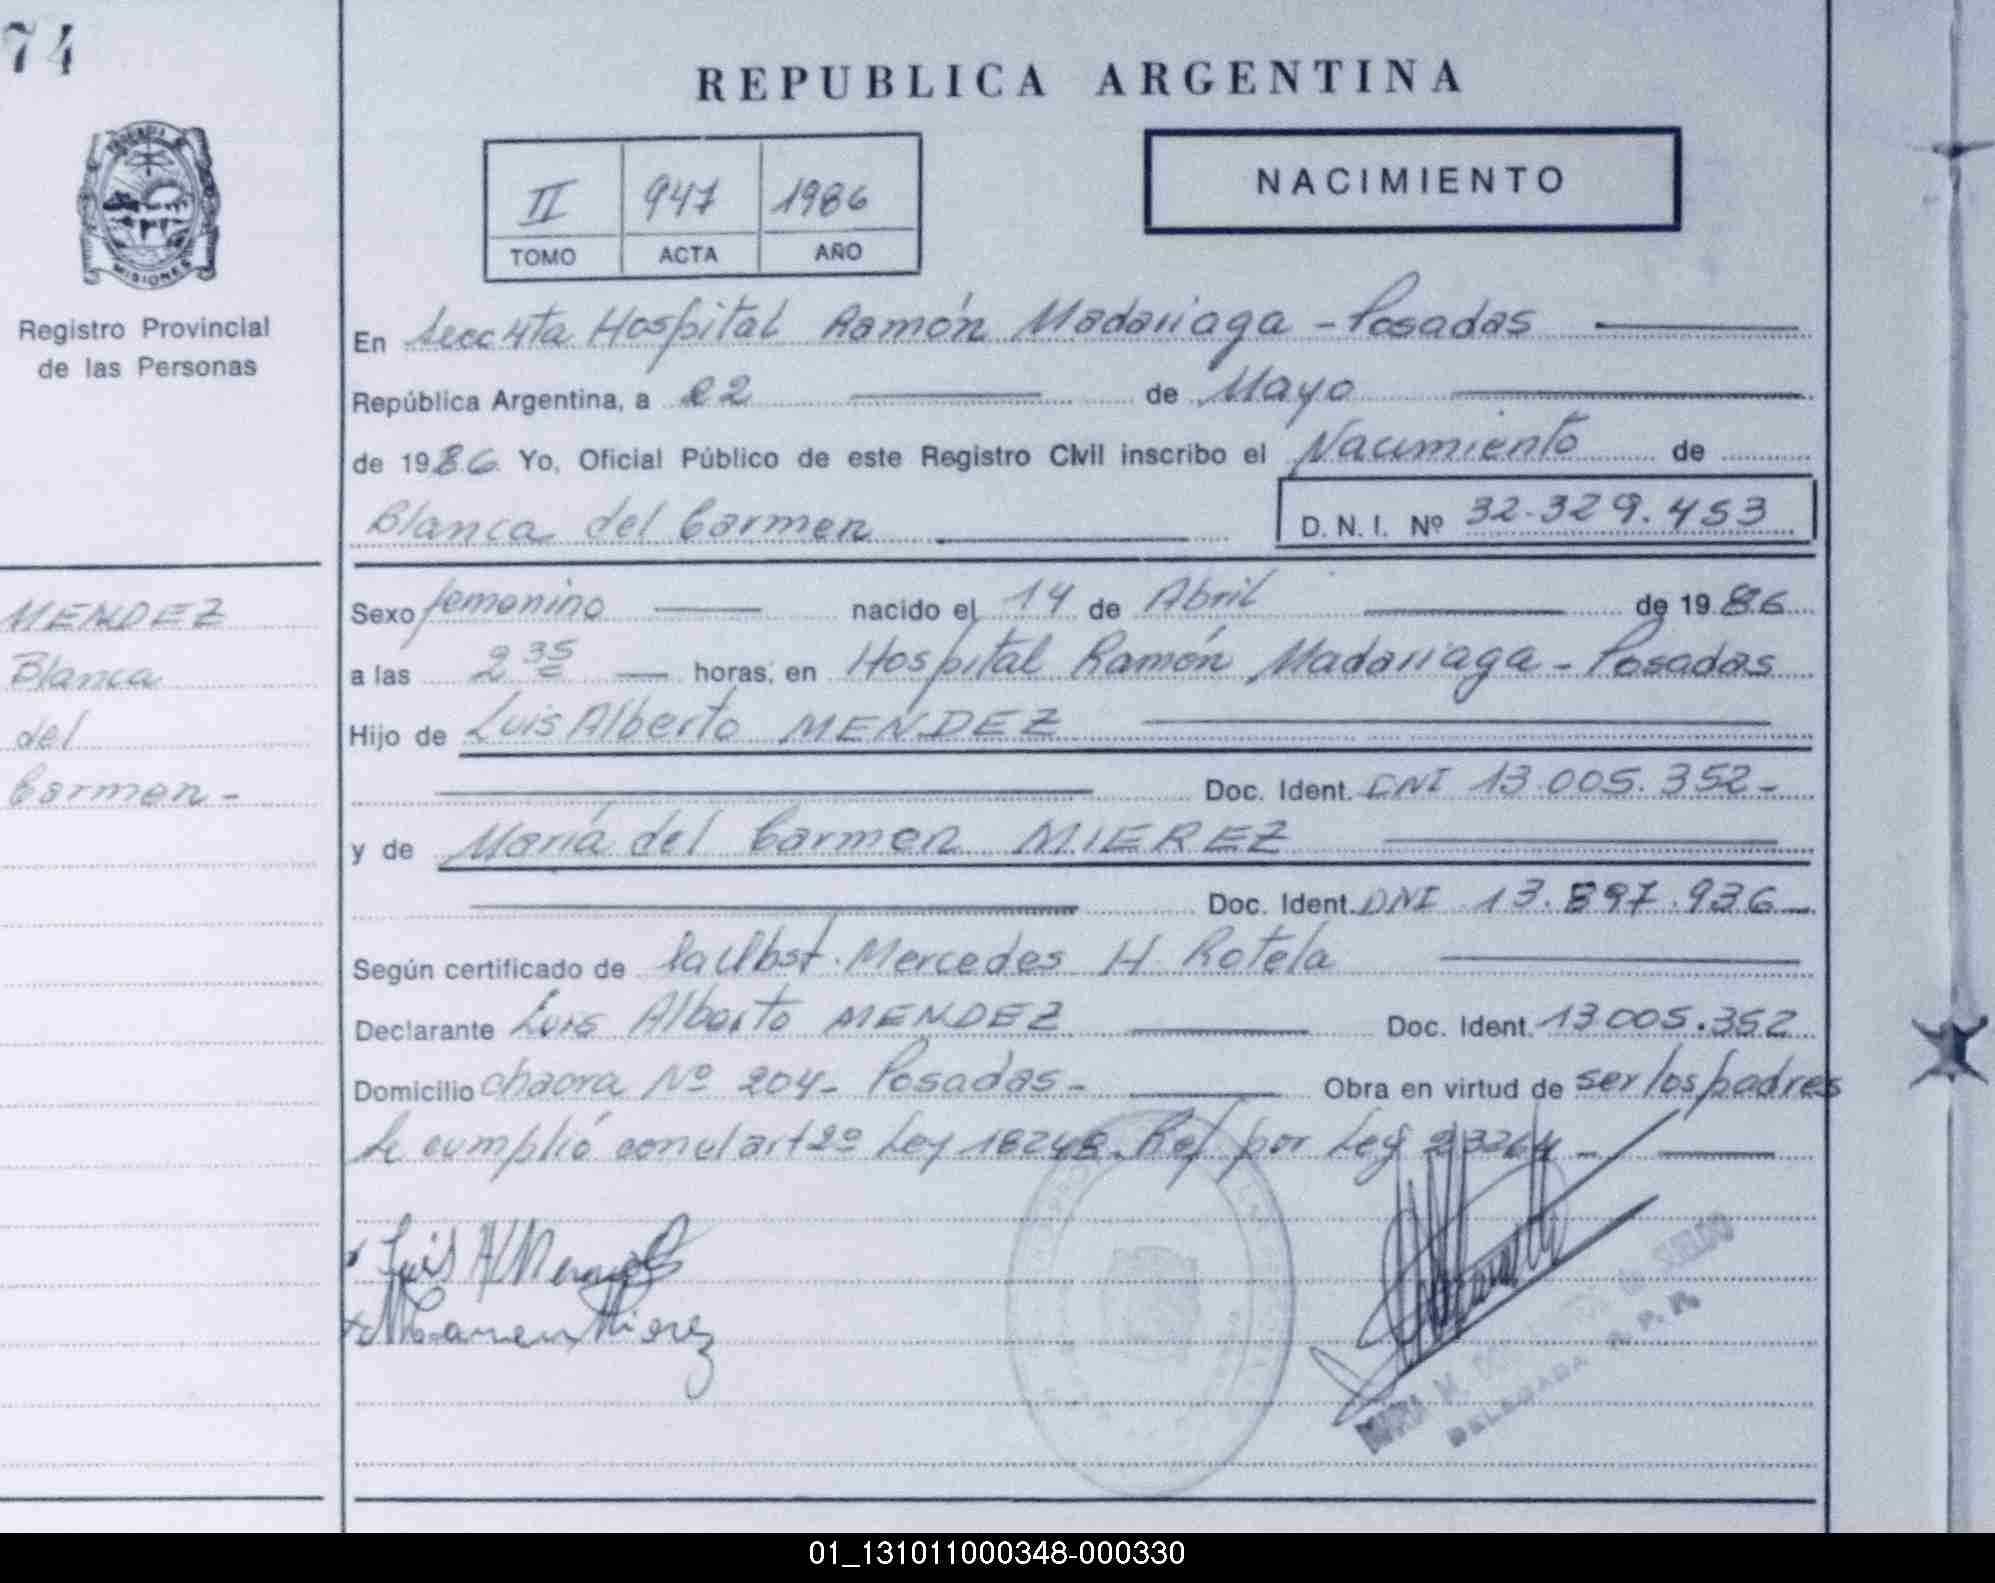 74
REPUBLICA ARGENTINA
II 947 1986
TOMO ACTA AÑO
NACIMIENTO
MISIONES
Registro Provincial
de las Personas
En Secc 4ta Hospital Ramón Madariaga - Posadas
República Argentina, a 22 de Mayo
de 1986 Yo, Oficial Público de este Registro Civil inscribo el Nacimiento de
Blanca del Carmen
D. N. I. Nº 32.329.453
MENDEZ
Blanca
del
Carmen -
Sexo femenino nacido el 14 de Abril de 1986
a las 2 35 horas, en Hospital Ramón Madariaga - Posadas
Hijo de Luis Alberto MENDEZ
Doc. Ident. DNI 13.005.352-
y de María del Carmen MIEREZ
Doc. Ident. DNI 13.897.936
Según certificado de la Obst. Mercedes H. Rotela
Declarante Luis Alberto MENDEZ Doc. Ident. 13005.352
Domicilio chacra Nº 204- Posadas- Obra en virtud de ser los padres
Se cumplió con el art 2º Ley 18248. Ref por Ley 23264 -
Luis Al Mendez
M Carmen Mierez
DELEGADA R. P. P.
01_131011000348-000330